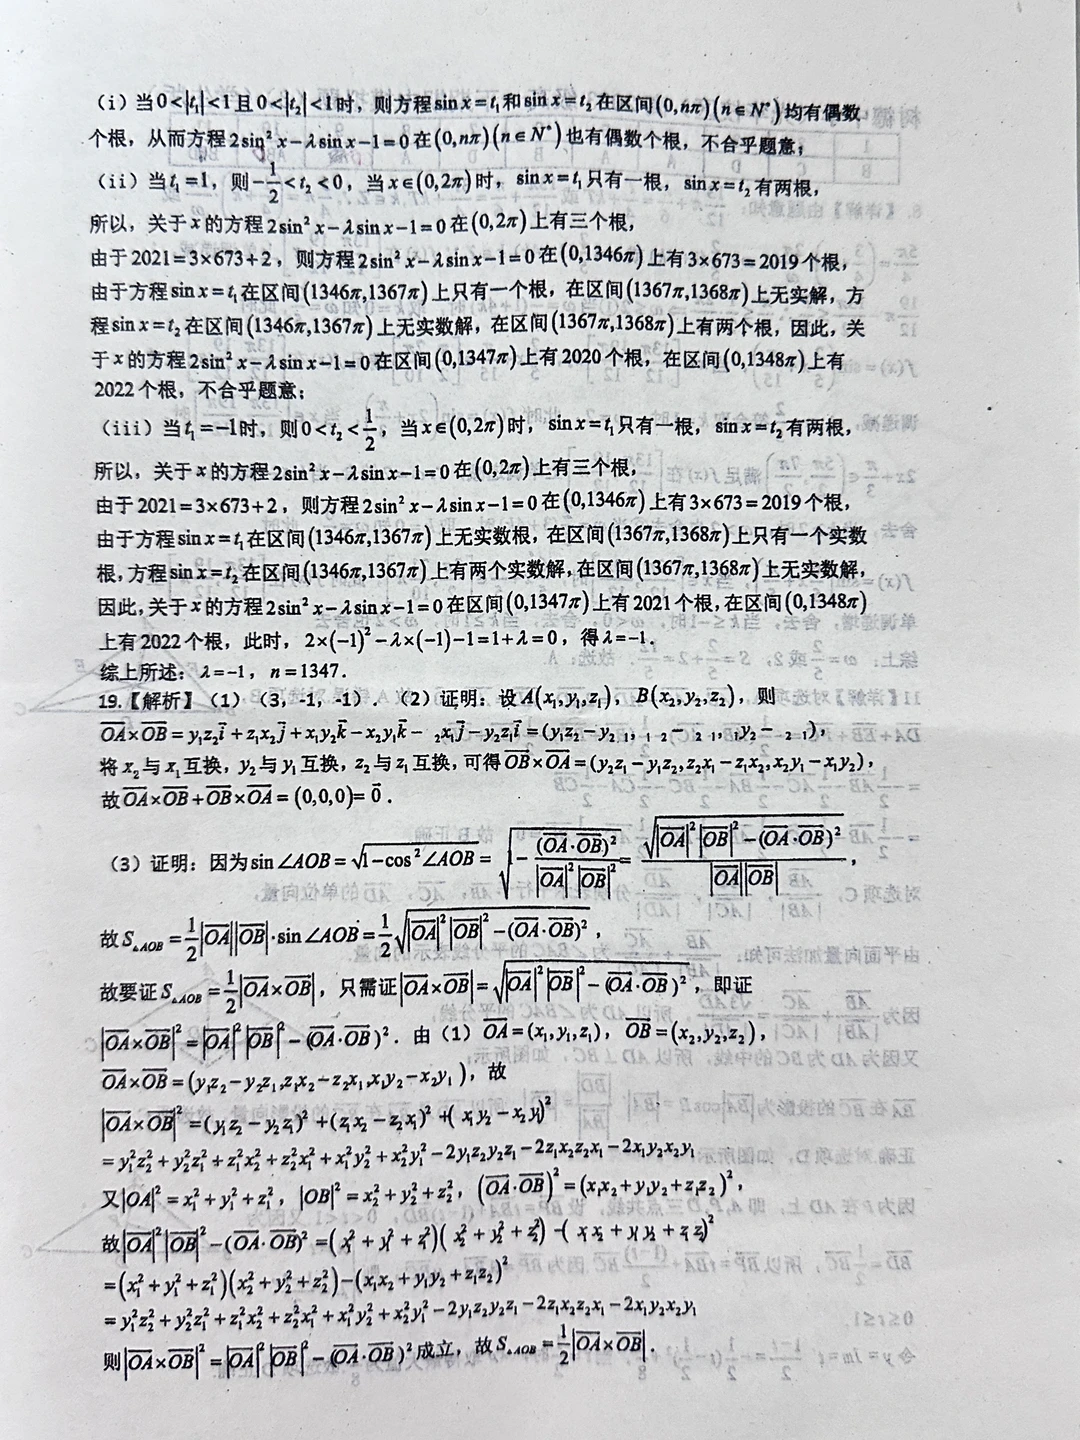 (i)当0<|t₁|<1且0<|t₂|<1时，则方程sin x=t₁和sin x=t₂在区间(0,nπ)(n∈N*)均有偶数
个根，从而方程2sin² x-λsin x-1=0在(0,nπ)(n∈N*)也有偶数个根，不合乎题意；
(ii)当t₁=1，则-1/2<t₂<0，当x∈(0,2π)时，sin x=t₁只有一根，sin x=t₂有两根，
所以，关于x的方程2sin² x-λsin x-1=0在(0,2π)上有三个根，
由于2021=3×673+2，则方程2sin² x-λsin x-1=0在(0,1346π)上有3×673=2019个根，
由于方程sin x=t₁在区间(1346π,1367π)上只有一个根，在区间(1367π,1368π)上无实解，方
程sin x=t₂在区间(1346π,1367π)上无实数解，在区间(1367π,1368π)上有两个根，因此，关
于x的方程2sin² x-λsin x-1=0在区间(0,1347π)上有2020个根，在区间(0,1348π)上有
2022个根，不合乎题意；
(iii)当t₁=-1时，则0<t₂<1/2，当x∈(0,2π)时，sin x=t₁只有一根，sin x=t₂有两根，
所以，关于x的方程2sin² x-λsin x-1=0在(0,2π)上有三个根，
由于2021=3×673+2，则方程2sin² x-λsin x-1=0在(0,1346π)上有3×673=2019个根，
由于方程sin x=t₁在区间(1346π,1367π)上无实数根，在区间(1367π,1368π)上只有一个实数
根，方程sin x=t₂在区间(1346π,1367π)上有两个实数解，在区间(1367π,1368π)上无实数解，
因此，关于x的方程2sin² x-λsin x-1=0在区间(0,1347π)上有2021个根，在区间(0,1348π)
上有2022个根，此时，2×(-1)²-λ×(-1)-1=1+λ=0，得λ=-1．
综上所述：λ=-1，n=1347．
19.【解析】(1)(3，-1，-1)．(2)证明：设A(x₁,y₁,z₁)，B(x₂,y₂,z₂)，则
OA×OB=y₁z₂i+z₁x₂j+x₁y₂k-x₂y₁k- ₂x₁j-y₂z₁i=(y₁z₂-y₂ ₁, ₁ ₂- ₂ ₁, ₁y₂- ₂ ₁)，
将x₂与x₁互换，y₂与y₁互换，z₂与z₁互换，可得OB×OA=(y₂z₁-y₁z₂,z₂x₁-z₁x₂,x₂y₁-x₁y₂)，
故OA×OB+OB×OA=(0,0,0)=0．
(3)证明：因为sin∠AOB=√(1-cos²∠AOB)=√(1-(OA·OB)²/(|OA|²|OB|²))=√(|OA|²|OB|²-(OA·OB)²)/(|OA||OB|)，
故S△AOB=1/2|OA||OB|·sin∠AOB=1/2√(|OA|²|OB|²-(OA·OB)²)，
故要证S△AOB=1/2|OA×OB|，只需证|OA×OB|=√(|OA|²|OB|²-(OA·OB)²)，即证
|OA×OB|²=|OA|²|OB|²-(OA·OB)²．由(1)OA=(x₁,y₁,z₁)，OB=(x₂,y₂,z₂)，
OA×OB=(y₁z₂-y₂z₁,z₁x₂-z₂x₁,x₁y₂-x₂y₁)，故
|OA×OB|²=(y₁z₂-y₂z₁)²+(z₁x₂-z₂x₁)²+(x₁y₂-x₂y₁)²
=y₁²z₂²+y₂²z₁²+z₁²x₂²+z₂²x₁²+x₁²y₂²+x₂²y₁²-2y₁z₂y₂z₁-2z₁x₂z₂x₁-2x₁y₂x₂y₁
又|OA|²=x₁²+y₁²+z₁²，|OB|²=x₂²+y₂²+z₂²，(OA·OB)²=(x₁x₂+y₁y₂+z₁z₂)²，
故|OA|²|OB|²-(OA·OB)²=(x₁²+y₁²+z₁²)(x₂²+y₂²+z₂²)-(x₁x₂+y₁y₂+z₁z₂)²
=(x₁²+y₁²+z₁²)(x₂²+y₂²+z₂²)-(x₁x₂+y₁y₂+z₁z₂)²
=y₁²z₂²+y₂²z₁²+z₁²x₂²+z₂²x₁²+x₁²y₂²+x₂²y₁²-2y₁z₂y₂z₁-2z₁x₂z₂x₁-2x₁y₂x₂y₁
则|OA×OB|²=|OA|²|OB|²-(OA·OB)²成立，故S△AOB=1/2|OA×OB|．